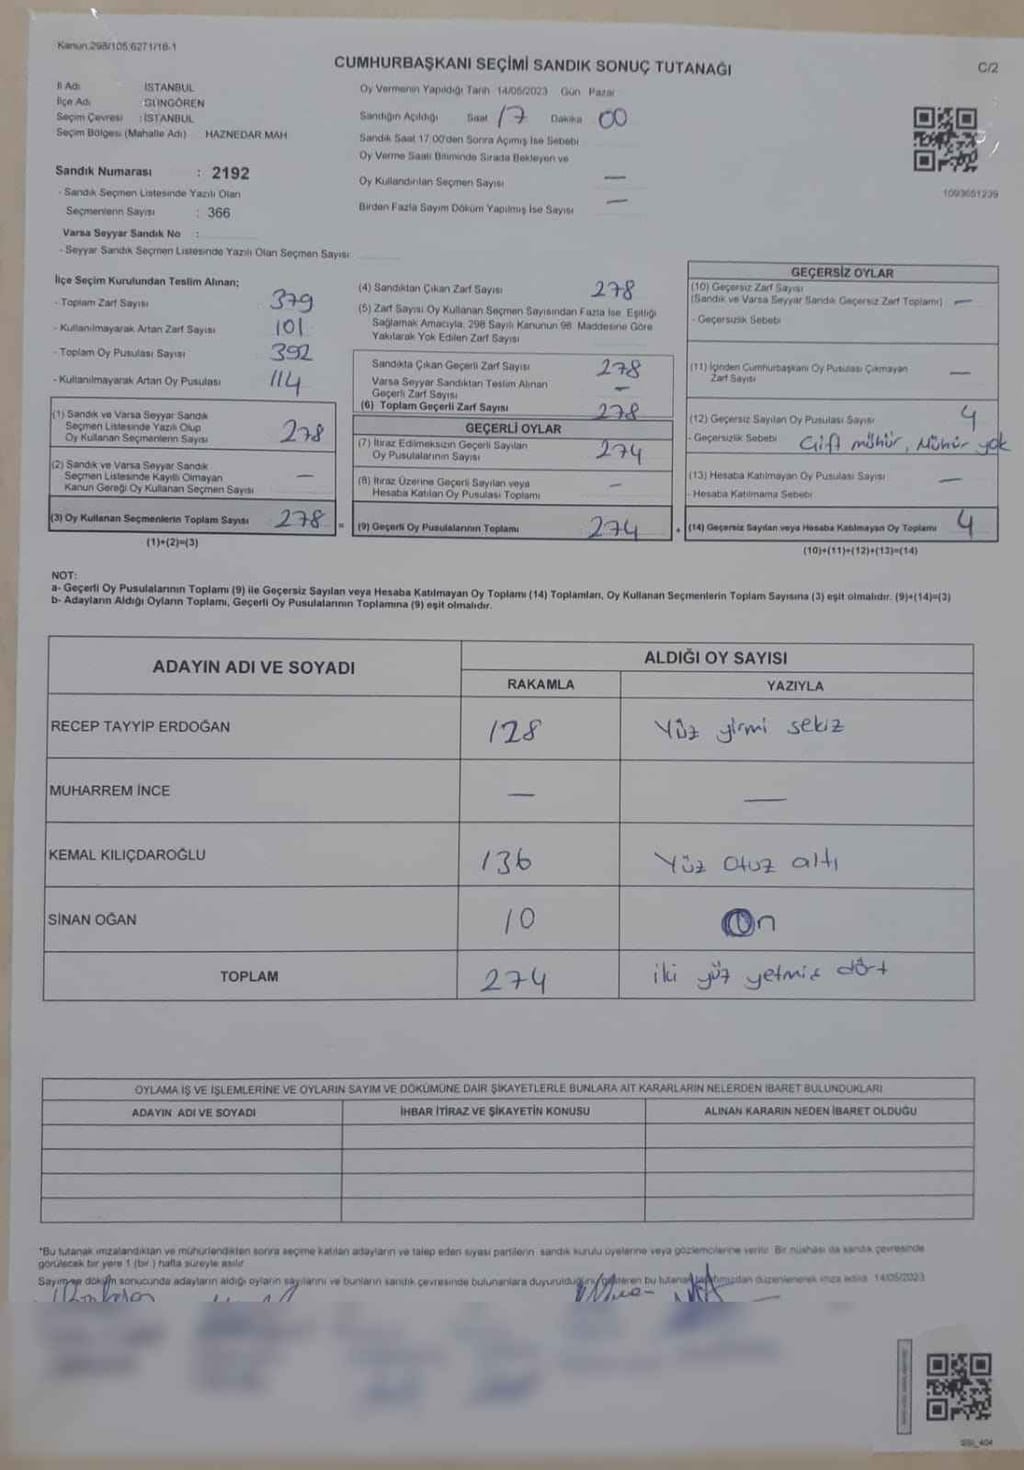 Kanun:298/105,6271/18-1
CUMHURBAŞKANI SEÇİMİ SANDIK SONUÇ TUTANAĞI
C/2
İl Adı İSTANBUL
İlçe Adı : GÜNGÖREN
Seçim Çevresi : İSTANBUL
Seçim Bölgesi (Mahalle Adı) HAZNEDAR MAH
Oy Vermenin Yapıldığı Tarih 14/05/2023 Gün Pazar
Sandığın Açıldığı Saat 17 Dakika 00
Sandık Saat 17:00'den Sonra Açımış İse Sebebi
Oy Verme Saati Bitiminde Sırada Bekleyen ve
Oy Kullandırılan Seçmen Sayısı —
Birden Fazla Sayım Döküm Yapılmış İse Sayısı —
1093651239
Sandık Numarası : 2192
- Sandık Seçmen Listesinde Yazılı Olan
Seçmenlerin Sayısı : 366
Varsa Seyyar Sandık No :
- Seyyar Sandık Seçmen Listesinde Yazılı Olan Seçmen Sayısı:
İlçe Seçim Kurulundan Teslim Alınan;
- Toplam Zarf Sayısı 379
- Kullanılmayarak Artan Zarf Sayısı 101
- Toplam Oy Pusulası Sayısı 392
- Kullanılmayarak Artan Oy Pusulası 114
(1) Sandık ve Varsa Seyyar Sandık
Seçmen Listesinde Yazılı Olup
Oy Kullanan Seçmenlerin Sayısı 278
(2) Sandık ve Varsa Seyyar Sandık
Seçmen Listesinde Kayıtlı Olmayan
Kanun Gereği Oy Kullanan Seçmen Sayısı —
(3) Oy Kullanan Seçmenlerin Toplam Sayısı 278 =
(1)+(2)=(3)
(4) Sandıktan Çıkan Zarf Sayısı 278
(5) Zarf Sayısı Oy Kullanan Seçmen Sayısından Fazla İse, Eşitliği
Sağlamak Amacıyla, 298 Sayılı Kanunun 98. Maddesine Göre
Yakılarak Yok Edilen Zarf Sayısı
Sandıkta Çıkan Geçerli Zarf Sayısı 278
Varsa Seyyar Sandıktan Teslim Alınan
Geçerli Zarf Sayısı —
(6) Toplam Geçerli Zarf Sayısı 278
GEÇERLİ OYLAR
(7) İtiraz Edilmeksizin Geçerli Sayılan
Oy Pusulalarının Sayısı 274
(8) İtiraz Üzerine Geçerli Sayılan veya
Hesaba Katılan Oy Pusulası Toplamı —
(9) Geçerli Oy Pusulalarının Toplamı 274 +
GEÇERSİZ OYLAR
(10) Geçersiz Zarf Sayısı
(Sandık ve Varsa Seyyar Sandık Geçersiz Zarf Toplamı) —
- Geçersizlik Sebebi
(11) İçinden Cumhurbaşkanı Oy Pusulası Çıkmayan
Zarf Sayısı —
(12) Geçersiz Sayılan Oy Pusulası Sayısı 4
- Geçersizlik Sebebi Çift mühür, Mühür yok
(13) Hesaba Katılmayan Oy Pusulası Sayısı —
- Hesaba Katılmama Sebebi
(14) Geçersiz Sayılan veya Hesaba Katılmayan Oy Toplamı 4
(10)+(11)+(12)+(13)=(14)
NOT:
a- Geçerli Oy Pusulalarının Toplamı (9) ile Geçersiz Sayılan veya Hesaba Katılmayan Oy Toplamı (14) Toplamları, Oy Kullanan Seçmenlerin Toplam Sayısına (3) eşit olmalıdır. (9)+(14)=(3)
b- Adayların Aldığı Oyların Toplamı, Geçerli Oy Pusulalarının Toplamına (9) eşit olmalıdır.
ADAYIN ADI VE SOYADI
ALDIĞI OY SAYISI
RAKAMLA YAZIYLA
RECEP TAYYİP ERDOĞAN 128 Yüz yirmi sekiz
MUHARREM İNCE — —
KEMAL KILIÇDAROĞLU 136 Yüz otuz altı
SİNAN OĞAN 10 On
TOPLAM 274 iki yüz yetmiş dört
OYLAMA İŞ VE İŞLEMLERİNE VE OYLARIN SAYIM VE DÖKÜMÜNE DAİR ŞİKAYETLERLE BUNLARA AİT KARARLARIN NELERDEN İBARET BULUNDUKLARI
ADAYIN ADI VE SOYADI İHBAR İTİRAZ VE ŞİKAYETİN KONUSU ALINAN KARARIN NEDEN İBARET OLDUĞU
*Bu tutanak imzalandıktan ve mühürlendikten sonra seçime katılan adayların ve talep eden siyasi partilerin sandık kurulu üyelerine veya gözlemcilerine verilir. Bir nüshası da sandık çevresinde
görülecek bir yere 1 (bir ) hafta süreyle asılır
Sayım ve döküm sonucunda adayların aldığı oyların sayılarını ve bunların sandık çevresinde bulunanlara duyurulduğunu gösteren bu tutanak tarafımızdan düzenlenerek imza edildi. 14/05/2023